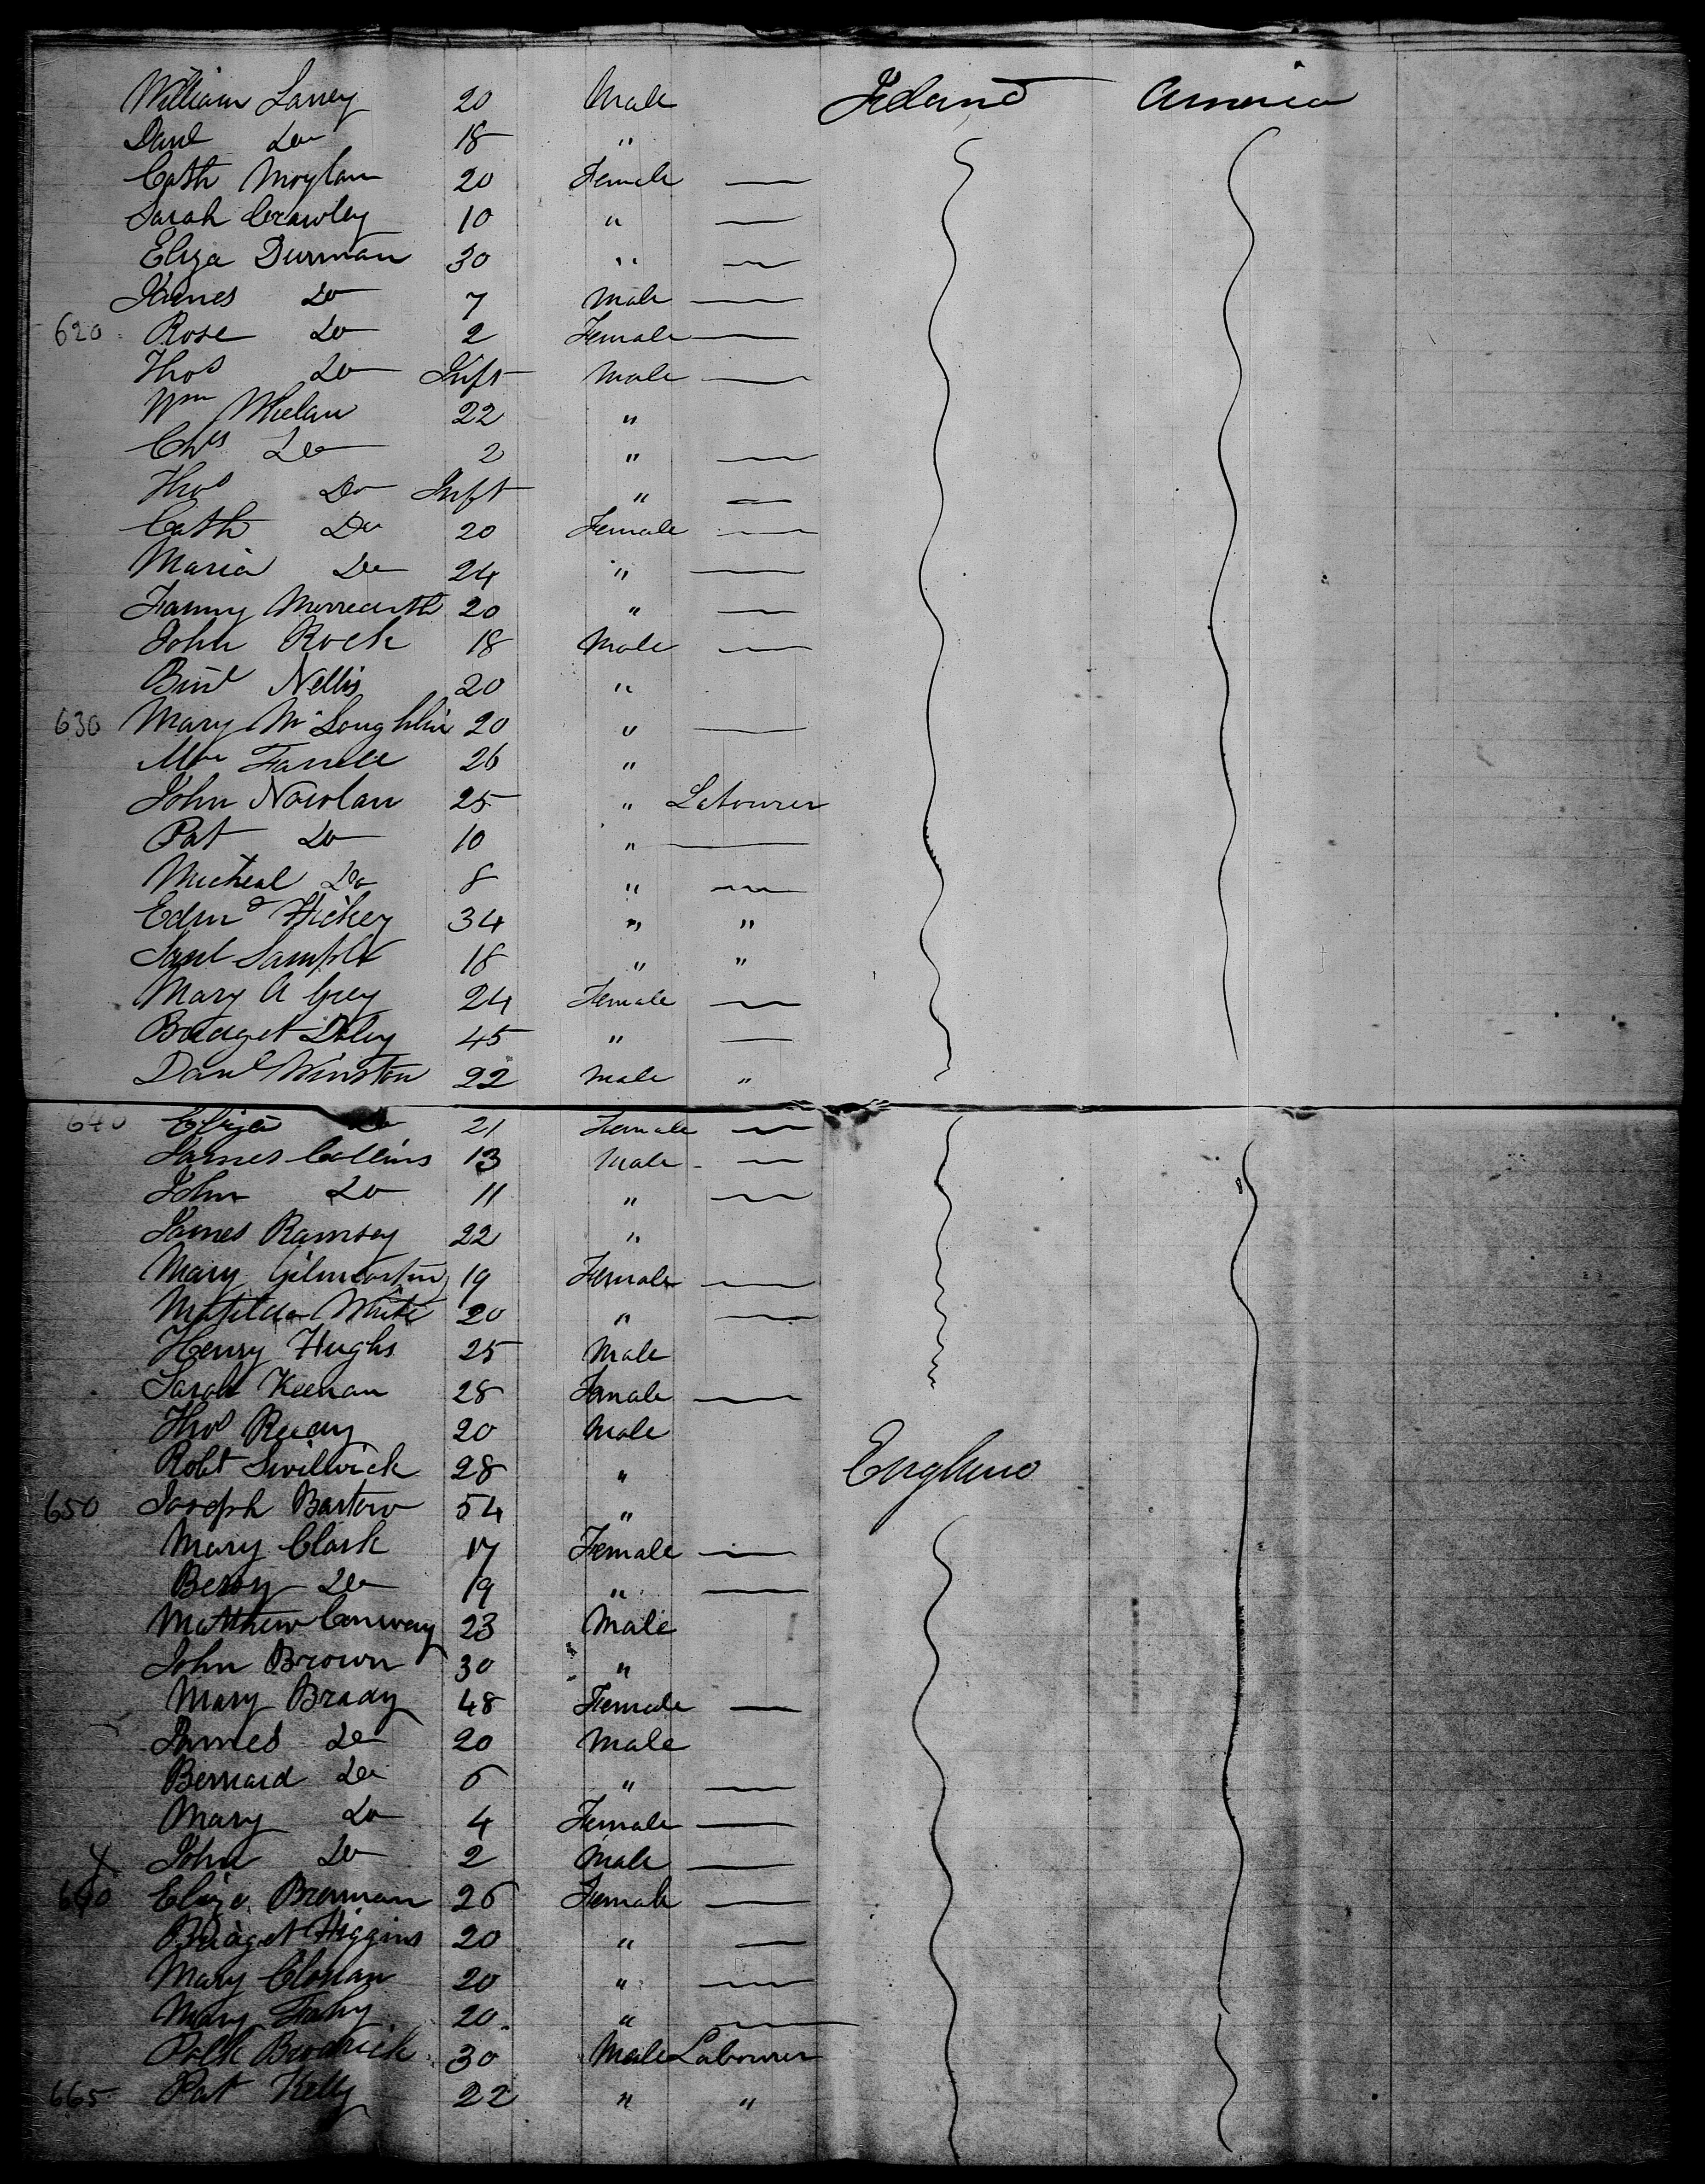 William Larrey 20 Male Ireland America
Danl Do 18 "
Cath Moylan 20 Female —
Sarah Crawley 10 " —
Eliza Durman 30 " —
James Do 7 Male —
620 Rose Do 2 Female —
Thos Do Inft Male —
Wm Whelan 22 "
Chs Do 2 " —
Thos Do Inft " —
Cath Do 20 Female —
Maria Do 24 " —
Fanny 20 " —
John Rock 18 Male —
Nellis 20 "
630 Mary McLoughlin 20 " —
Farrell 26 "
John Nowlan 25 " Labourer
Pat Do 10 " —
Micheal Do 8 " —
Edmd Hickey 34 " "
Saml Sample 18 " "
Mary A Grey 24 Female —
Bridget Daley 45 " —
Danl Winston 22 Male "
640 Eliza Do 21 Female —
James Collins 13 Male —
John Do 11 " —
James Ramsey 22 "
Mary Gilmartin 19 Female —
Matilda White 20 " —
Henry Hughs 25 Male
Sarah Keenan 28 Female —
Thos 20 Male
Robt 28 " England
650 Joseph Bartow 54 "
Mary Clark 17 Female —
Bessy Do 19 " —
Matthew Conway 23 Male
John Brown 30 "
Mary Brady 48 Female —
James Do 20 Male
Bernard Do 6 " —
Mary Do 4 Female —
X John Do 2 Male —
660 Eliza Brennan 26 Female —
Bridget Higgins 20 " —
Mary 20 " —
Mary Fahy 20 " —
Patk Brodrick 30 Male Labourer
665 Pat Kelly 22 " "